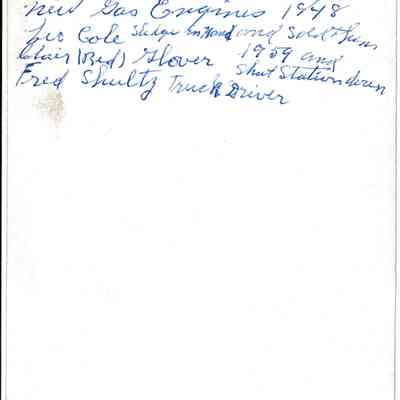 New Gas Engines 1948
Leo Cole Sledge in Hand and Sold them
Clair (Red) Glover 1959 and
Shut Station down
Fred Shultz Truck Driver